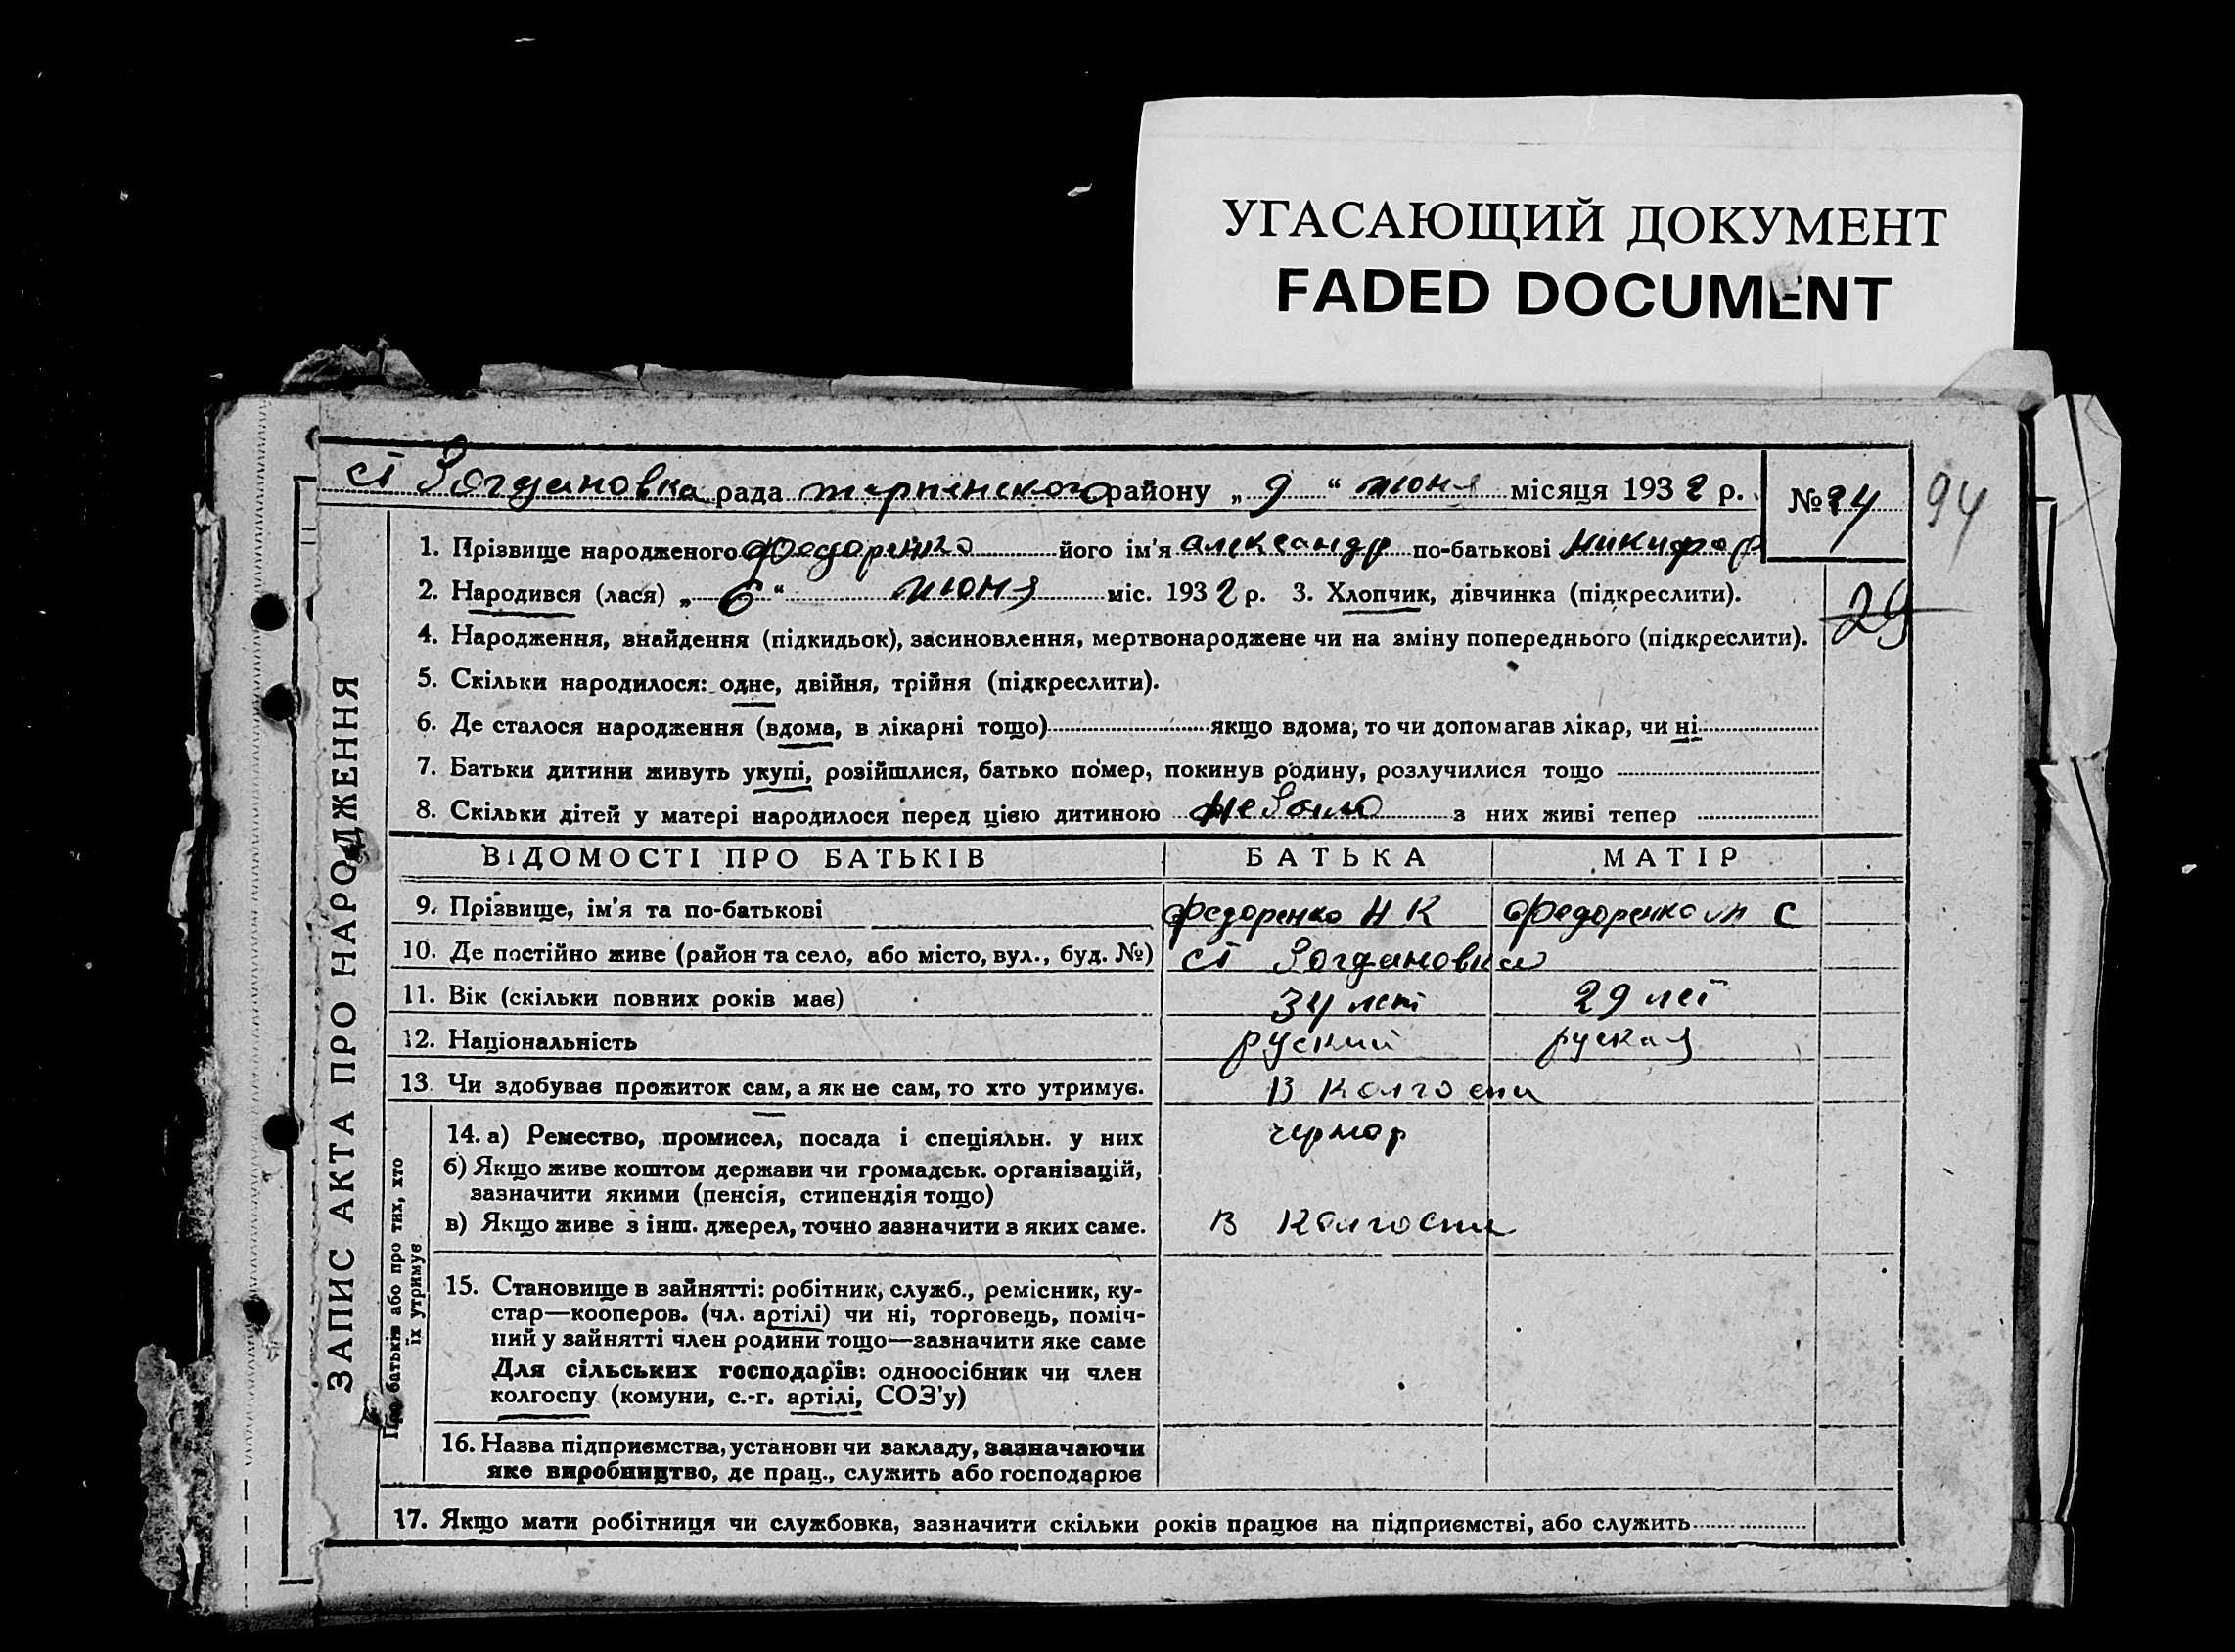 УГАСАЮЩИЙ ДОКУМЕНТ
FADED DOCUMENT
ст Богдановка рада терпенского району „ 9 “ июня місяця 1932 р. № 24
94
1. Прізвище народженого Федоренко його ім'я александр по-батькові никифор
2. Народився (лася) „ 6 “ июня міс. 1932 р. 3. Хлопчик, дівчинка (підкреслити).
29
4. Народження, знайдення (підкидьок), засиновлення, мертвонароджене чи на зміну попереднього (підкреслити).
5. Скільки народилося: одне, двійня, трійня (підкреслити).
6. Де сталося народження (вдома, в лікарні тощо) якщо вдома, то чи допомагав лікар, чи ні
7. Батьки дитини живуть укупі, розійшлися, батько помер, покинув родину, розлучилися тощо
8. Скільки дітей у матері народилося перед цією дитиною небыло з них живі тепер
ВІДОМОСТІ ПРО БАТЬКІВ БАТЬКА МАТІР
9. Прізвище, ім'я та по-батькові Федоренко Н К Федоренко м С
10. Де постійно живе (район та село, або місто, вул., буд. №) ст Богдановка
11. Вік (скільки повних років має) 34 лет 29 лет
12. Національність руский руская
13. Чи здобуває прожиток сам, а як не сам, то хто утримує. В колгоспи
14. а) Ремество, промисел, посада і спеціяльн. у них
б) Якщо живе коштом держави чи громадськ. організацій,
зазначити якими (пенсія, стипендія тощо)
в) Якщо живе з інш. джерел, точно зазначити з яких саме. В Колгоспи
15. Становище в зайнятті: робітник, служб., ремісник, ку-
стар—кооперов. (чл. артілі) чи ні, торговець, поміч-
ний у зайнятті член родини тощо—зазначити яке саме
Для сільських господарів: одноосібник чи член
колгоспу (комуни, с.-г. артілі, СОЗ'у)
16. Назва підприємства, установи чи закладу, зазначаючи
яке виробництво, де прац., служить або господарює
17. Якщо мати робітниця чи службовка, зазначити скільки років працює на підприємстві, або служить
ЗАПИС АКТА ПРО НАРОДЖЕННЯ
Про батьків або про тих, хто
їх утримує